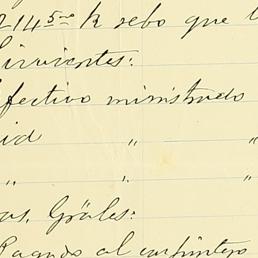 214 5 k sebo que
Sirvientes:
Efectivo ministrado
id " "
" " "
Gräles:
Pagado al carpintero